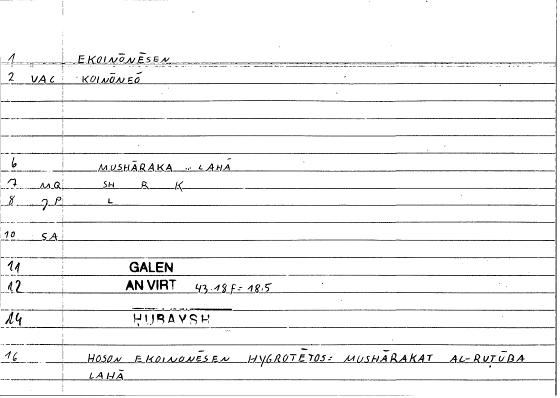 1 EKOINŌNĒSEN
2 VAC KOINŌNEŌ
6 MUSHĀRAKA .. LAHĀ
7 M.Q SH R K
8 J.P L
10 SA
11 GALEN
12 AN VIRT 43.18 F = 18.5
14 ḤUBAYSH
16 HOSON EKOINŌNĒSEN HYGROTĒTOS: MUSHĀRAKAT AL-RUṬŪBA
LAHĀ